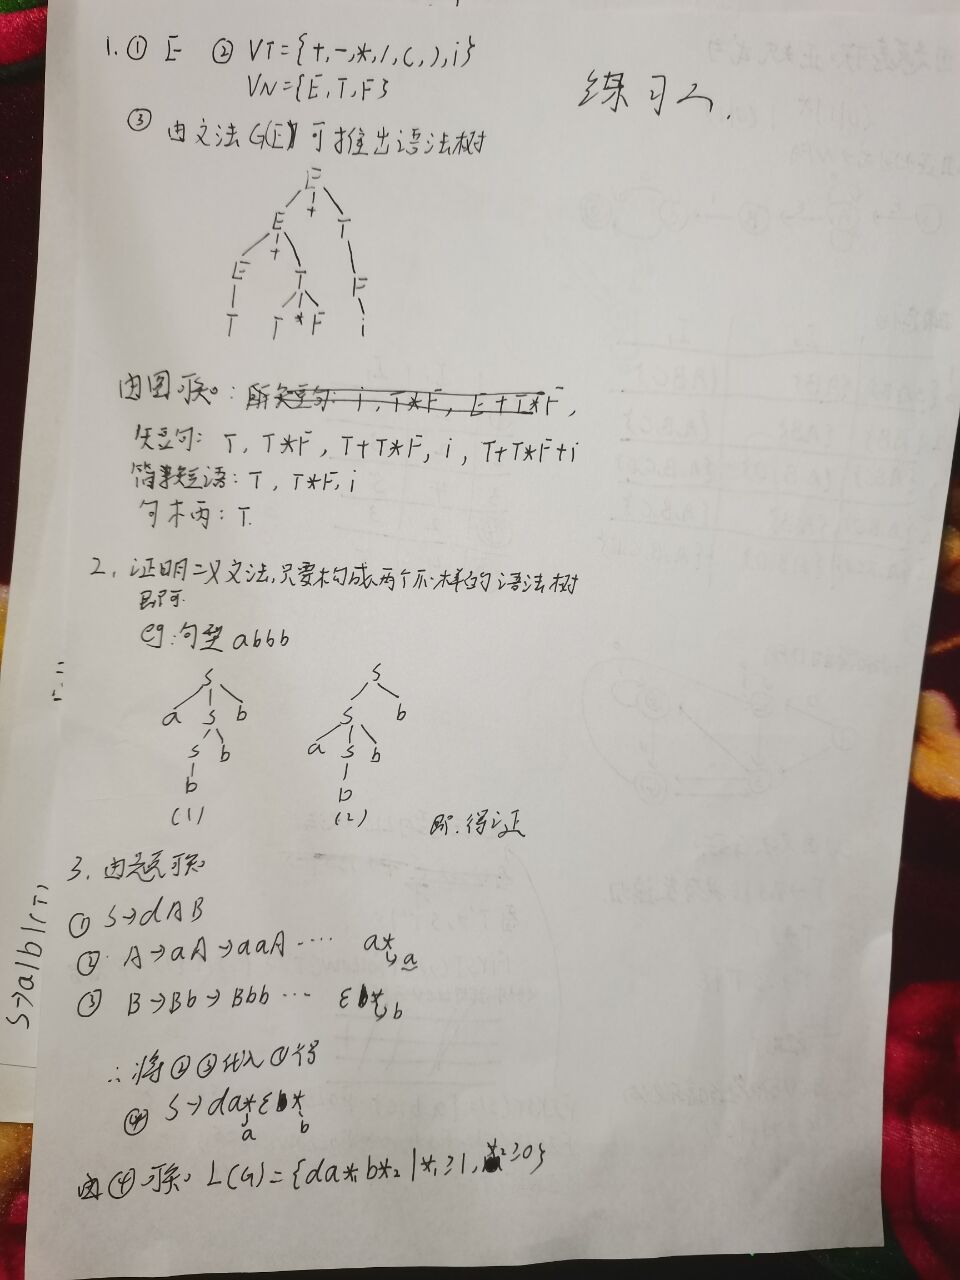 1. ① E ② VT={+,-,*,/,(,),i}
VN={E,T,F}
练习二.
③ 由文法G(E)可推出语法树
E
+
E T
+
E T F
T T * F i
由图可知: 所短句: i, T*F, E+T*F,
短句: T, T*F, T+T*F, i, T+T*F+i
简单短语: T, T*F, i
句柄: T.
2. 证明二义文法,只要构成两个不一样的语法树
即可.
eg:句型 abbb
S S
a S b S b
S b a S b
b b
(1) (2)
即.得证
3. 由题可知
① S→dAB
② A→aA→aaA···· a*
a
③ B→Bb→Bbb··· εb*
b
∴将②③代入①得
④ S→da*εb*
a b
由④可知 L(G)={da*₁b*₂|*₁≥1,*₂≥0}
S→a|b|(T)